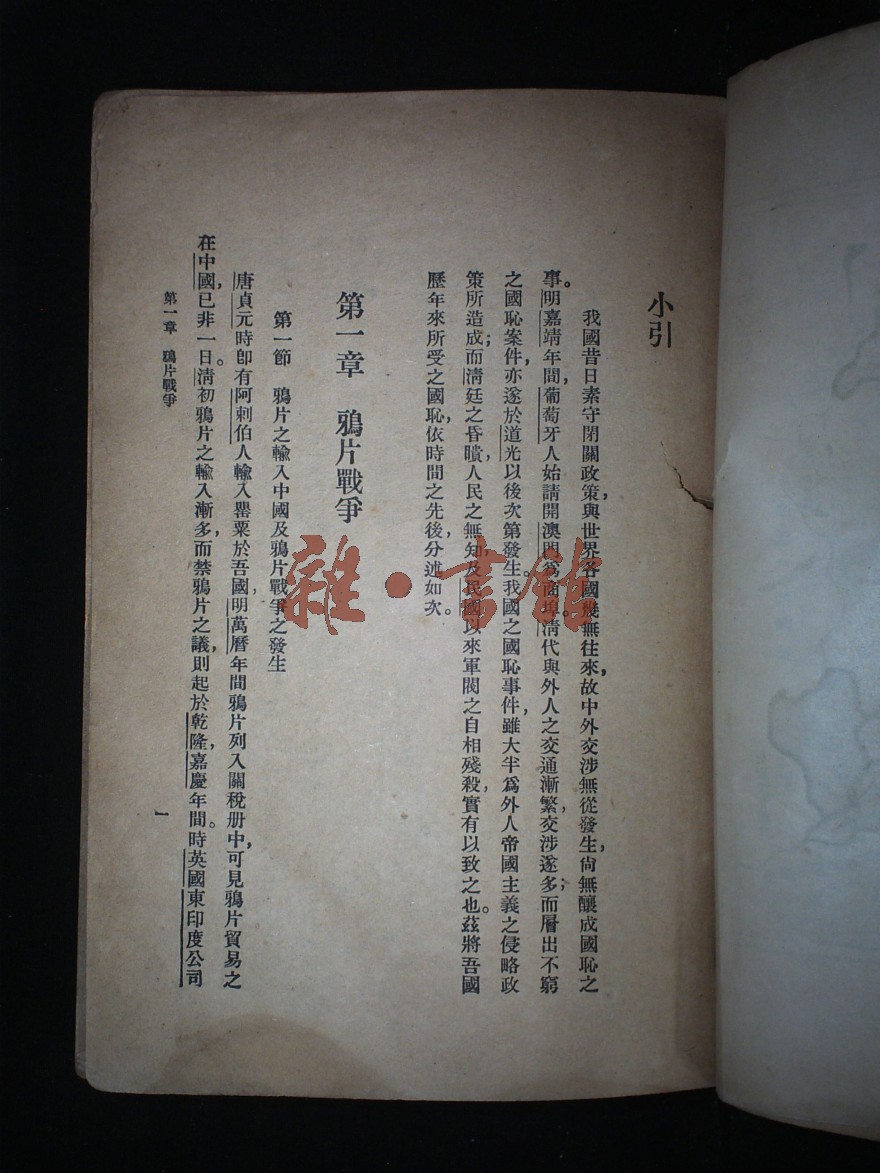 小引
我國昔日素守閉關政策，與世界各國幾無往來，故中外交涉無從發生，尙無釀成國恥之
事。明嘉靖年間，葡萄牙人始請開澳門爲商埠。淸代與外人之交通漸繁，交涉遂多；而層出不窮
之國恥案件，亦遂於道光以後次第發生。我國之國恥事件，雖大半爲外人帝國主義之侵略政
策所造成；而淸廷之昏瞶，人民之無知，及民國以來軍閥之自相殘殺，實有以致之也。茲將吾國
歷年來所受之國恥，依時間之先後，分述如次。
第一章　鴉片戰爭
第一節　鴉片之輸入中國及鴉片戰爭之發生
唐貞元時卽有阿剌伯人輸入罌粟於吾國，明萬曆年間鴉片列入關稅册中，可見鴉片貿易之
在中國，已非一日。淸初鴉片之輸入漸多，而禁鴉片之議，則起於乾隆，嘉慶年間。時英國東印度公司
第一章　鴉片戰爭
一
雜·書館